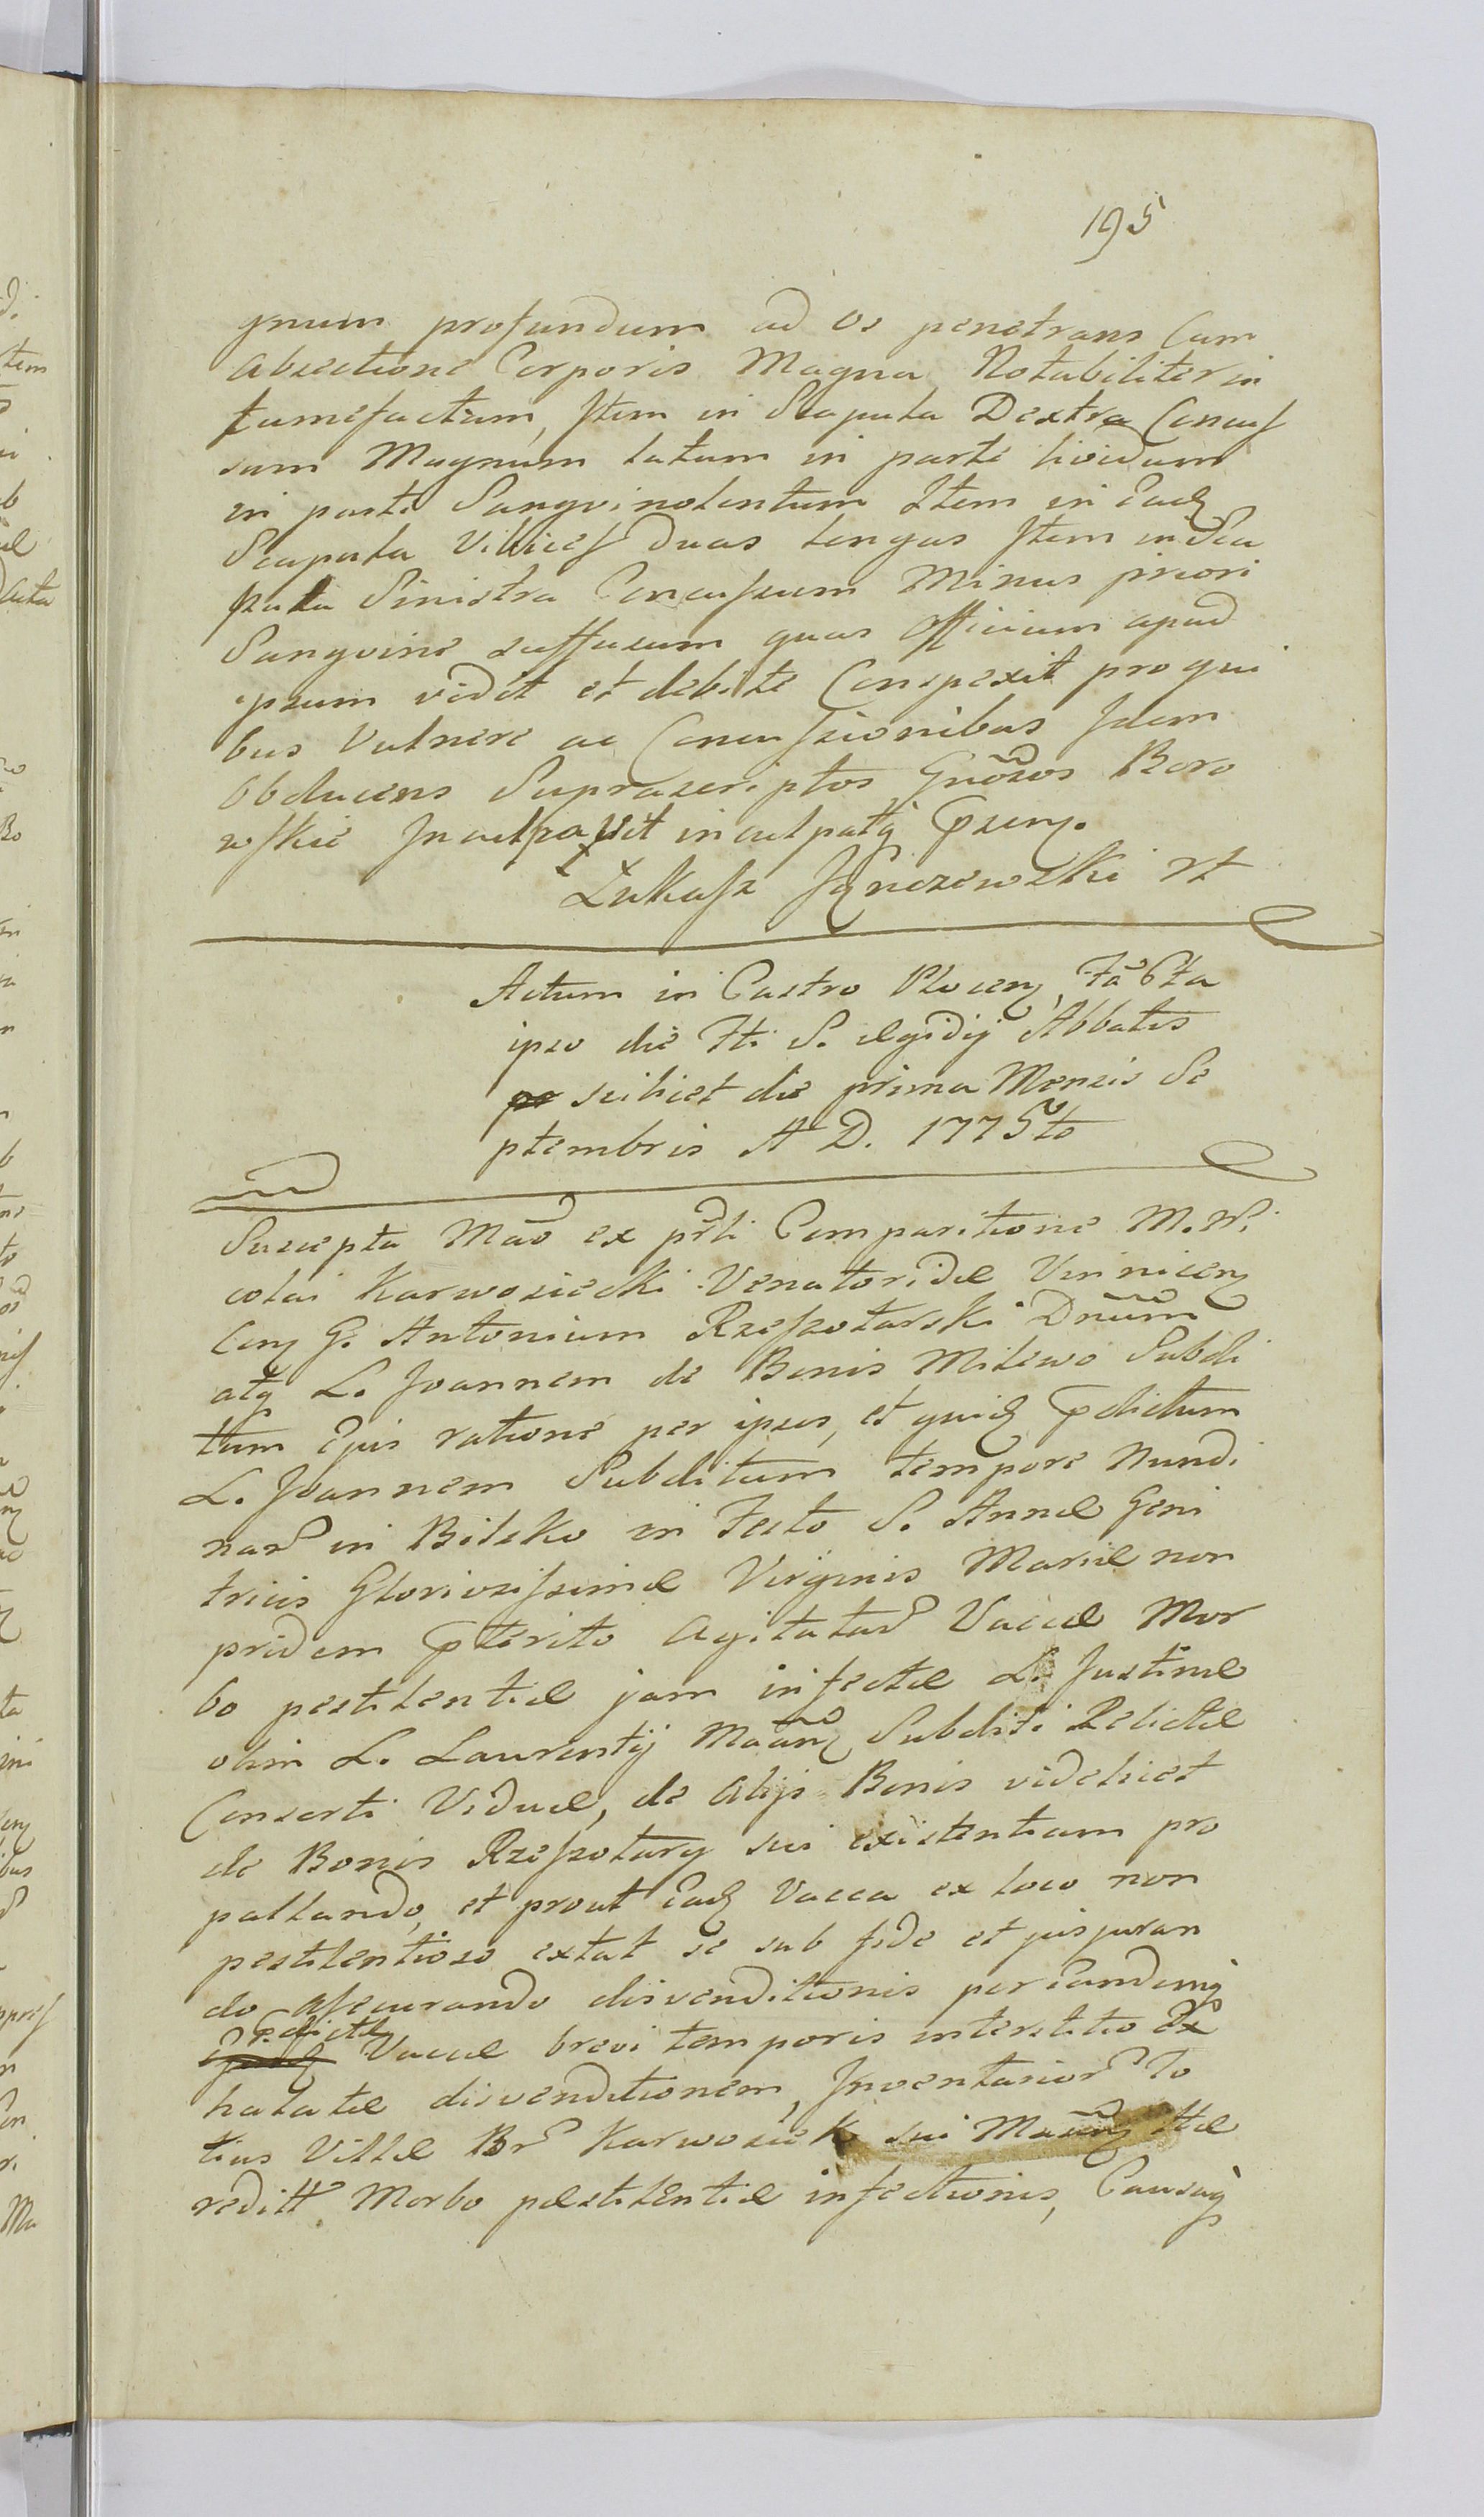 195
gnum profundum ad os penetrans Cum
absectione Corporis Magna Notabiliter in
tumefactum, Item in Scapula Dextra Concus
sum Magnum latum in parte lividum
in parte Sangvinolentum Item in Eadq
Scapula Vibices duas longas Item in Sca
pula Sinistra Concussum Minus priori
Sangvine suffusum quas Officium apud
ipsum vidit et debite Conspexit pro qui
bus Vulnere ac Concussionibus Idem
Obducens Suprascriptos Gnosos Boro
wskie Inculpavit inculpatq
Łukasz Jęnczewski
Actum in Castro Plocen Fa 6ta
ipso die Fti S. Egidij Abbatis
scilicet die prima Mensis Se
ptembris A D. 1775to
Suscepta Mao ex prti Comparitione M. Ni
colai Karwosiecki Venatoridae Vinnicen
Con G. Antonium Rzeszotarski Dnum
atq L. Joannem de Bonis Milewo Subdi
tum Ejus ratione per ipsos, et quidq pdictum
L. Joannem Subditum tempore Nundi
nar in Bilsko in Festo S. Annae Geni
tricis Gloriosissimae Virginis Mariae non
pridem pterito agitatar Vaccae Mor
bo pestilentiae jam infectae L. Justinae
olim L. Laurentij Subditi Relictae
Consorti Viduae, de alijs Bonis videlicet
de Bonis Rzeszotary sui existentiam pro
pallando, et prout Eadq Vacca ex loco non
pestilentioso extat se sub fide et jusjuran
do assecurando disvenditionis per Eundemq
pdictae Vaccae brevi temporis interstitio Ex
halatae disvenditionem, Inventarior To
tius Villae Br Karwosiek sui He
reditt Morbo pestilentiae infectionis, Causaq